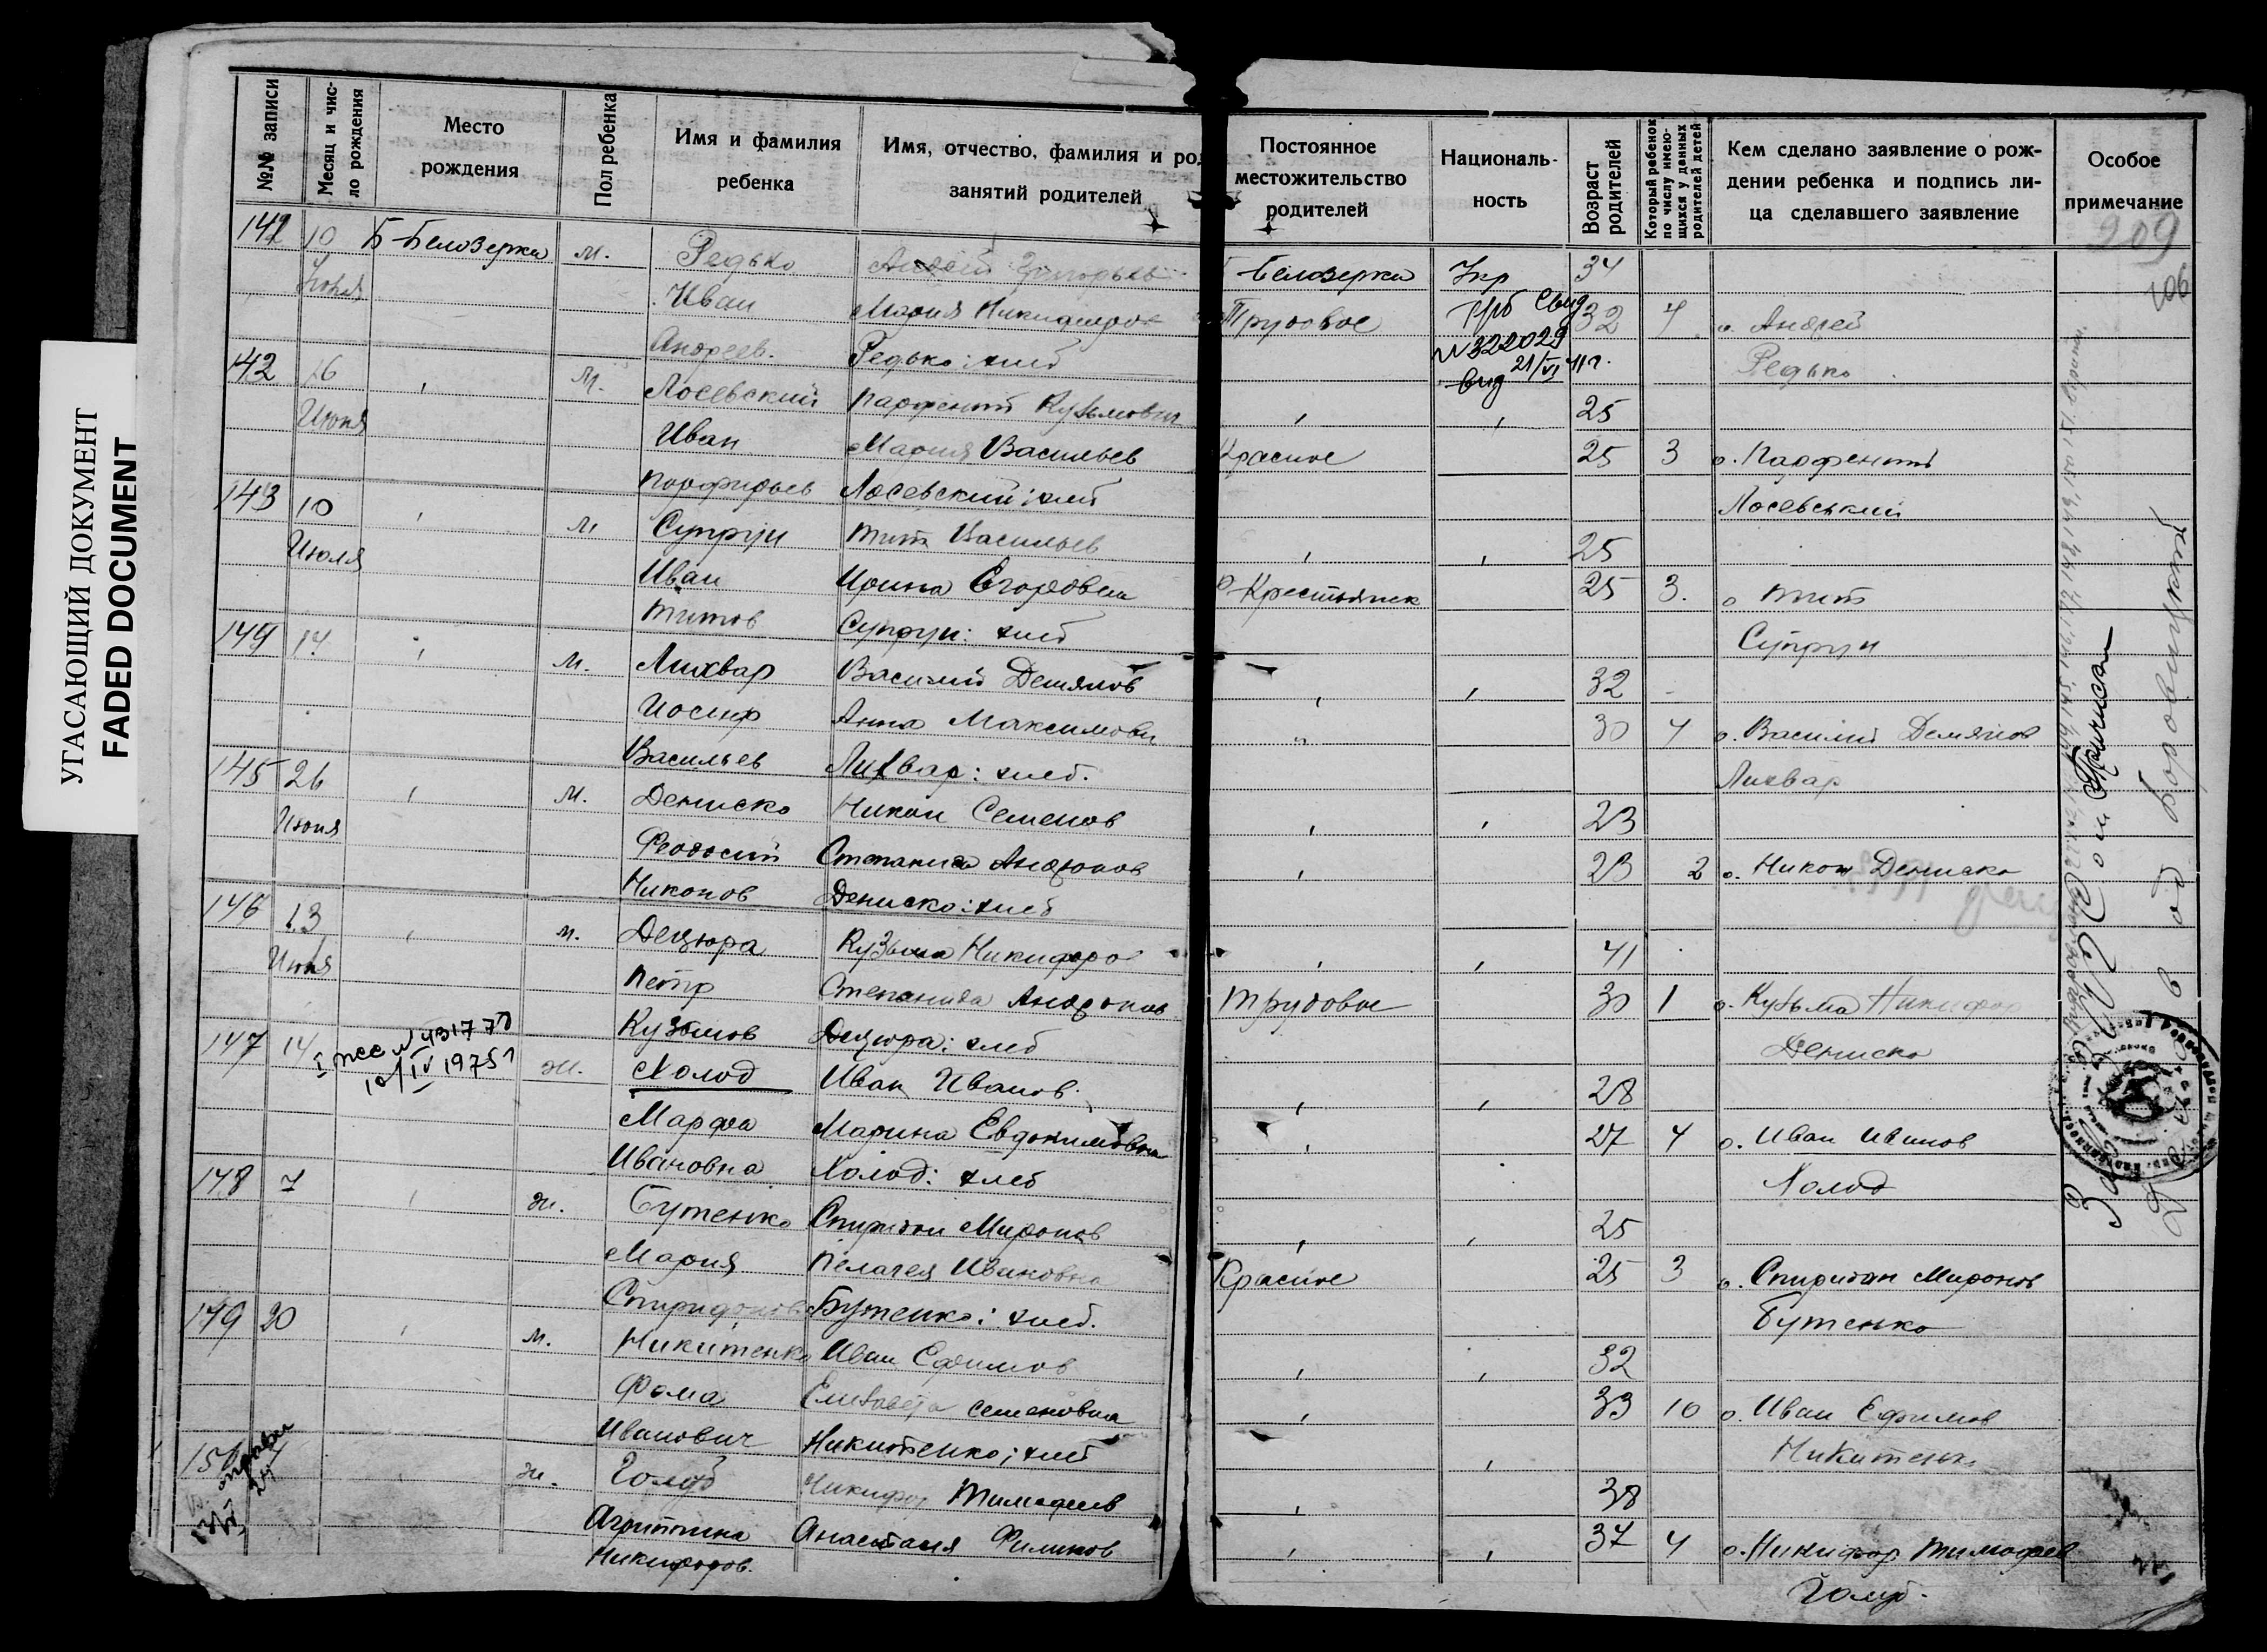 УГАСАЮЩИЙ ДОКУМЕНТ
FADED DOCUMENT
№№ записи
Месяц и чис-
ло рождения
Место
рождения
Пол ребенка
Имя и фамилия
ребенка
Имя, отчество, фамилия и ро
занятий родителей
Постоянное
местожительство
родителей
Националь-
ность
Возраст
родителей
Который ребенок
по числу имею-
щихся у данных
родителей детей
Кем сделано заявление о рож-
дении ребенка и подпись ли-
ца сделавшего заявление
Особое
примечание
209
106
10 Б-Белозерка м. Редько Белозерка Укр 34
Иван Мария Трудовое 32 4 о. Андрей
Андреев. Редько: хлеб Редько
N 322029
21/VI 41 г.
142 16 м. Лосевский Парфентий Кузьмович 25
Июня Иван Мария Васильев Красное 25 3 о. Парфентий
Лосевский: хлеб Лосевський
143 10 м Супрун Тит Васильев 25
Июля Иван Ирина Егоровна Крестьянск 25 3. о Тит
Титов Супрун: хлеб Супрун
144 14 м. Лихвар Василий Демянов 32
Иосиф Анна Максимовн 30 4 о. Василий Демянов
Васильев Лихвар: хлеб. Лихвар
145 26 м. Дениско Никон Семенов 23
Июня Феодосий Степанида Андронов 23 2 о. Никон Дениско
Никонов Дениско: хлеб
146 13 м. Децюра Кузьма Никифоров 41
Июня Петр Степанида Андронов Трудовое 30 1 о. Кузьма Никифор
Кузьмов Децюра: хлеб Дениско
147 14 ж. Холод Иван Иванов. 28
10/IV 1975
Марфа Марина Евдокимовна 27 4 о. Иван Иванов
Ивановна Холод: хлеб Холод
148 7 ж. Бутенко Спиридон Миронов 25
Мария Пелагея Ивановна Красное 25 3 о. Спиридон Миронов
Спиридонов Бутенко: хлеб. Бутенко
149 20 м. Никитенко Иван Ефимов 32
Фома Елизавета Семеновна 33 10 о. Иван Ефимов
Иванович Никитенко: хлеб Никитенк
150 ж. Голуб Никифор Тимофеев 38
Агриппина Анастасия Филипов 37 4 о. Никифор Тимофеев
Никифоров. Голуб.